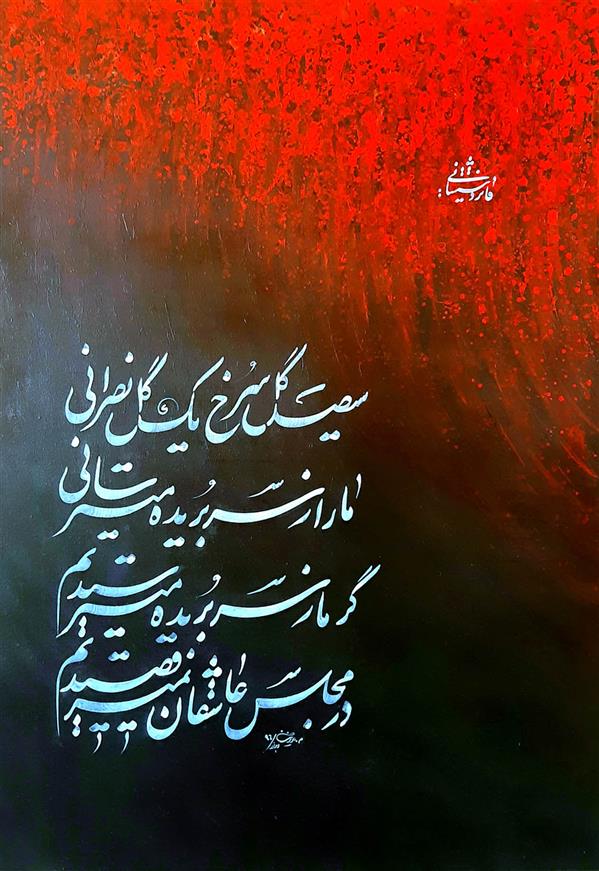 فائز دشتستانی:
سیصد گل سرخ یک گل نصرانی
ما را ز سر بُریده میترسانی
گر ما ز سر بُریده میترسیدیم
در مجلس عاشقان نمیرقصیدیم